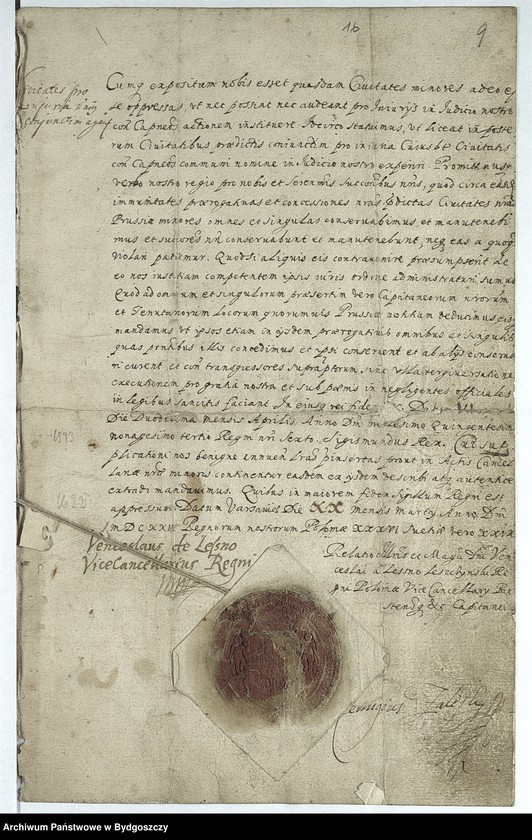 16 9
Civitates pro
Cumq expositum nobis esset quasdam Civitates minores adeo es
se oppressas, ut nec possint nec audeant pro Iniurijs in Iudicio nostro
con Capneos actionem instituere Idcirco statuimus, ut liceat in poste
rum Civitatibus praedictis coniunctim pro iniuria Cuiusbet Civitatis
con Capneos communi nomine in Iudicio nostro experiri. Promittimusq
verbo nostro regio pro nobis et Serenmis Succoribus nris, quod circa
immunitates praerogativas et concessiones nras pdictas Civitates nras
Prussiae minores omnes et singulas conservabimus, et manutenebi
mus et succores nri conservabunt et manutenebunt, neq eas a quoq
violari patiemur. Quodsi aliquis eis contravenire praesumpserit de
eo nos iustitiam competentem ipsis iuris ordine administraturi sumus
Quod ad omnium et singulorum praesertim vero Capitaneorum nrorum
et Tenutariorum locorum quorumvis Prussiae notitiam deducimus eis
mandamus ut ipsos etiam in ijsdem praerogativis omnibus et singulis
quas pntibus illis concedimus et ipsi conservent et ab alijs conserva
ri curent et con transgressores supraptorum sine ulla tergiversatione
executionem pro gratia nostra et sub paenis in negligentes officiales
in legibus sancitis faciant In cuius rei fidem
Die Duodecima mensis Aprilis. Anno Dni millesimo Quingentesimo
nonagesimo tertio Regni nri Sexto. Sigismundus Rex. Cui sup
plicationi nos benigne annuen lras pinsertas prout in Actis Cancel
lariae nrae minoris continentur easdem ex ijsdem describi atq autentice
extradi mandavimus. Quibus in maiorem fidem Sigillum Regni est
appressum. Datum Varsaviae Die XX mensis Marty Anno Dni
M DC XXII Regnorum nostrorum Poloniae XXXVI Sueciae vero XXIX
1593
1622
Venceslaus de Lesno
ViceCancellarius Regni
Relatio Illris et Magci Dni Ven
ceslai a Lesno Leszczynski Re
gni Poloniae Vice Cancellary
Capitanei
Remigius Zaleski
Archiwum Państwowe w Bydgoszczy